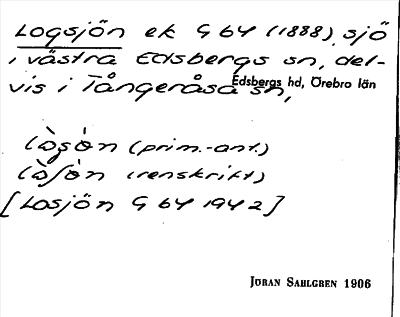 Logsjön ek G 64 (1888), sjö
i västra Edsbergs sn, del-
vis i Tångeråsa sn,
Edsbergs hd, Örebro län
(prim.-ant.)
(renskrift)
[Losjön G 64 1942]
JÖRAN SAHLGREN 1906